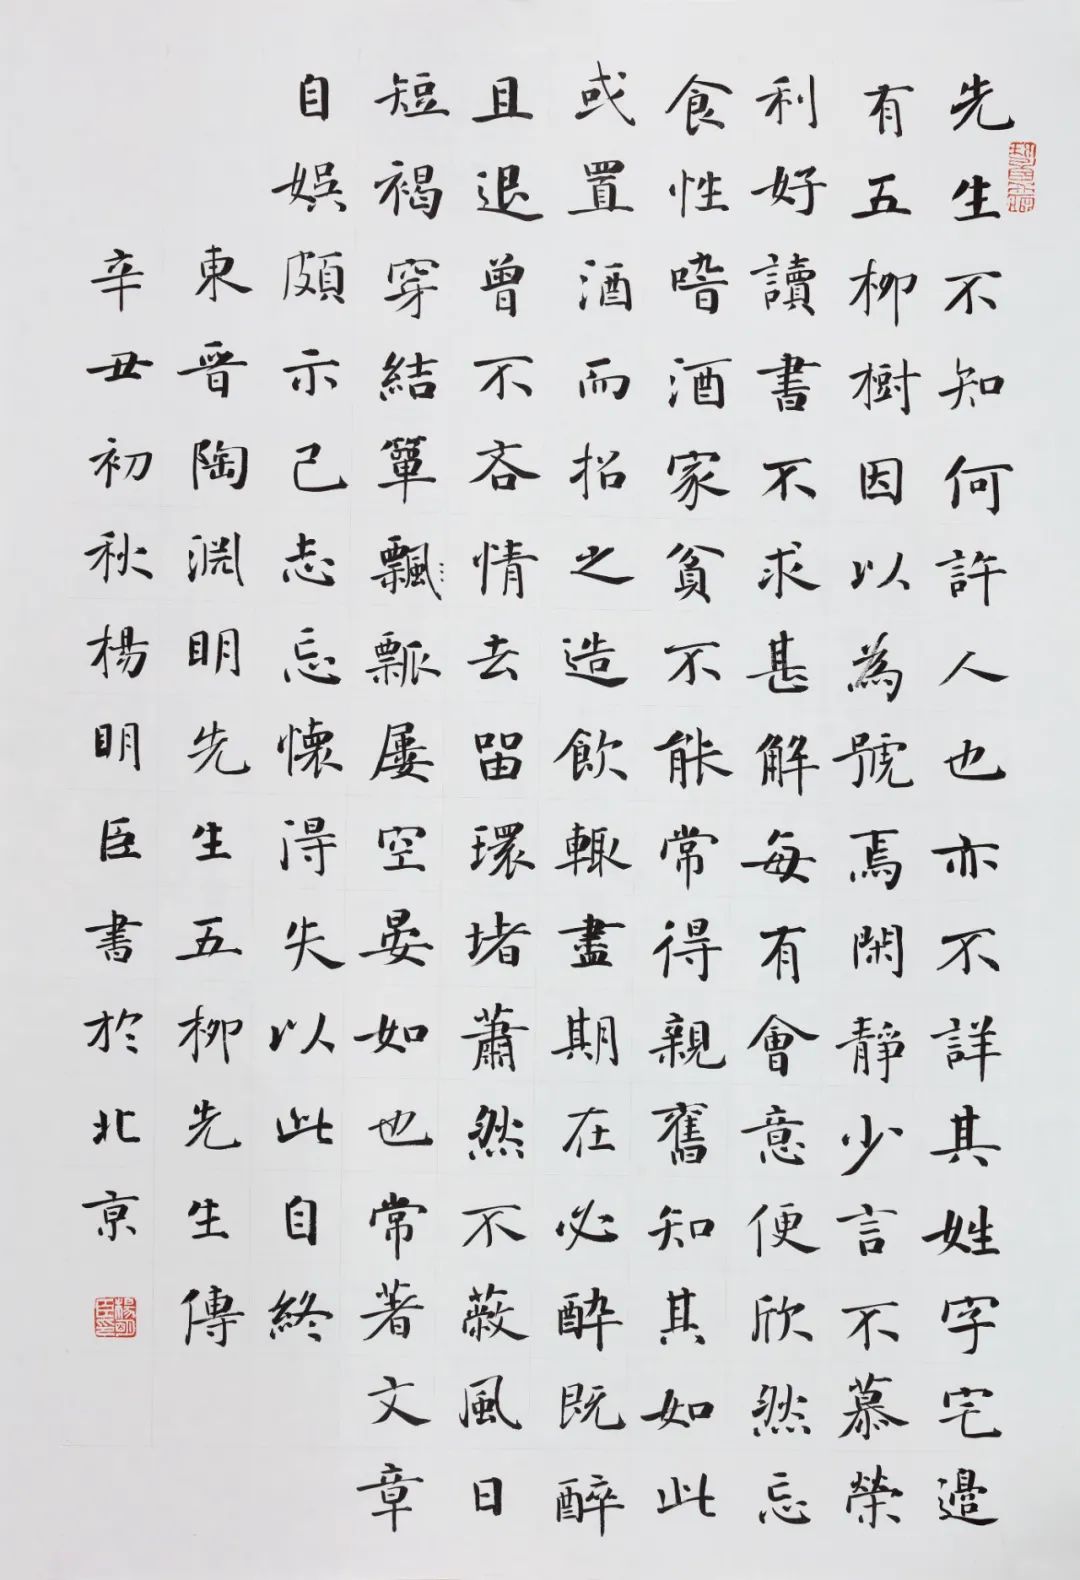 先生不知何許人也亦不詳其姓字宅邊
有五柳樹因以為號焉閑靜少言不慕榮
利好讀書不求甚解每有會意便欣然忘
食性嗜酒家貧不能常得親舊知其如此
或置酒而招之造飲輒盡期在必醉既醉
且退曾不吝情去留環堵蕭然不蔽風日
短褐穿結簞飄瓢屢空晏如也常著文章
自娛頗示己志忘懷得失以此自終
東晉陶淵明先生五柳先生傳
辛丑初秋楊明臣書於北京
楊明臣印